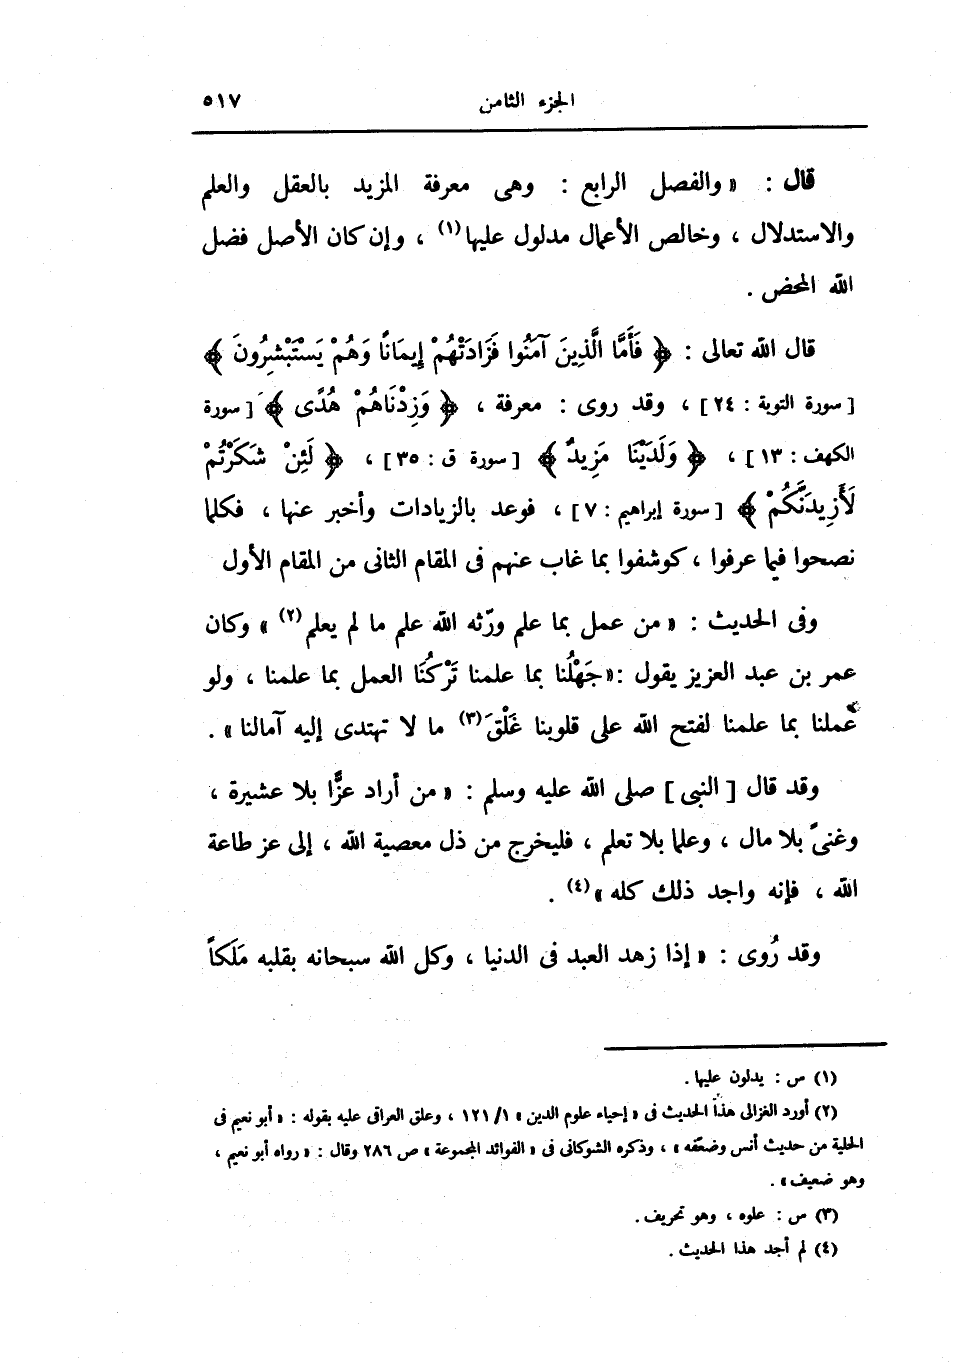 الجزء الثامن ٥١٧
قال : « والفصل الرابع : وهى معرفة المزيد بالعقل والعلم
والاستدلال ، وخالص الأعمال مدلول عليها(١) ، وإن كان الأصل فضل
الله المحض .
قال الله تعالى : ﴿ فَأَمَّا الَّذِينَ آمَنُوا فَزَادَتْهُمْ إِيمَانًا وَهُمْ يَسْتَبْشِرُونَ ﴾
[ سورة التوبة : ٢٤ ] ، وقد روى : معرفة ، ﴿ وَزِدْنَاهُمْ هُدًى ﴾ [ سورة
الكهف : ١٣ ] ، ﴿ وَلَدَيْنَا مَزِيدٌ ﴾ [ سورة ق : ٣٥ ] ، ﴿ لَئِنْ شَكَرْتُمْ
لَأَزِيدَنَّكُمْ ﴾ [ سورة إبراهيم : ٧ ] ، فوعد بالزيادات وأخبر عنها ، فكلما
نصحوا فيما عرفوا ، كوشفوا بما غاب عنهم فى المقام الثانى من المقام الأول
وفى الحديث : « من عمل بما علم ورّثه الله علم ما لم يعلم(٢) » وكان
عمر بن عبد العزيز يقول :«جَهْلُنا بما علمنا تَرْكُنَا العمل بما علمنا ، ولو
عملنا بما علمنا لفتح الله على قلوبنا غَلْقَ(٣) ما لا تهتدى إليه آمالنا » .
وقد قال [ النبى ] صلى الله عليه وسلم : « من أراد عزًّا بلا عشيرة ،
وغنىً بلا مال ، وعلما بلا تعلم ، فليخرج من ذل معصية الله ، إلى عز طاعة
الله ، فإنه واجد ذلك كله »(٤) .
وقد رُوى : « إذا زهد العبد فى الدنيا ، وكل الله سبحانه بقلبه مَلَكاً
(١) س : يدلون عليها .
(٢) أورد الغزالى هذا الحديث فى « إحياء علوم الدين » ١/ ١٢١ ، وعلق العراقى عليه بقوله : « أبو نعيم فى
الحلية من حديث أنس وضعّفه » ، وذكره الشوكانى فى « الفوائد المجموعة » ص ٢٨٦ وقال : « رواه أبو نعيم ،
وهو ضعيف » .
(٣) س : علوه ، وهو تحريف .
(٤) لم أجد هذا الحديث .